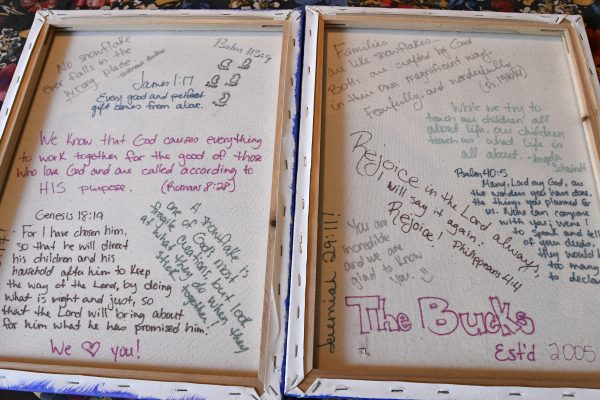 No snowflake
ever falls in the
wrong place
Psalm
James 1:17
Every good and perfect
gift comes from above.
We know that God causes everything
to work together for the good of those
who love God and are called according to
HIS purpose. (Romans 8:28)
Genesis 18:19
For I have chosen him,
so that he will direct
his children and his
household after him to keep
the way of the Lord, by doing
what is right and just, so
that the Lord will bring about
for him what he has promised him.
A snowflake is
one of God's most
fragile creations, but look
at what they do when they
stick together!
We ♡ you!
Families
are like snowflakes...
Both are crafted by God
in their own magnificent way.
Fearfully and wonderfully
While we try to
teach our children all
about life, our children
teach us what life is
all about. - Angela
Schwindt
Rejoice in the Lord always,
I will say it again:
Rejoice!
Philippians 4:4
Psalm 40:5
Many, Lord my God, are
the wonders you have done,
the things you planned for
us. None can compare
with you; were I
to speak and tell
of your deeds,
they would be
too many
to declare
You are
incredible
and we are
glad to know
you. :)
Jeremiah 29:11!
The Bucks
Est'd 2005